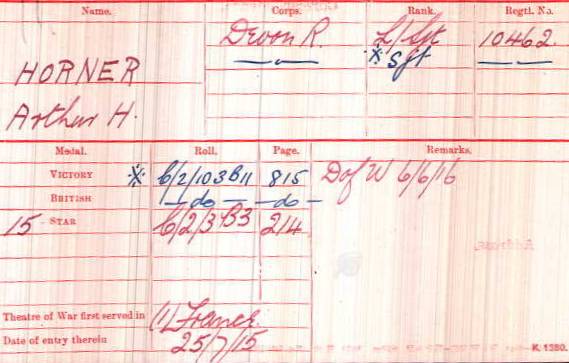 Name. Corps. Rank. Regtl. No.
Devon R. L/Sgt 10462.
—„— * Sgt —„—
HORNER
Arthur H.
Medal. Roll. Page. Remarks.
VICTORY * C/2/103B11 815 D of W 6/6/16
BRITISH —do— —do—
15 STAR C/2/3 B3 214
Theatre of War first served in (1) France
Date of entry therein 25/7/15
K. 1380.